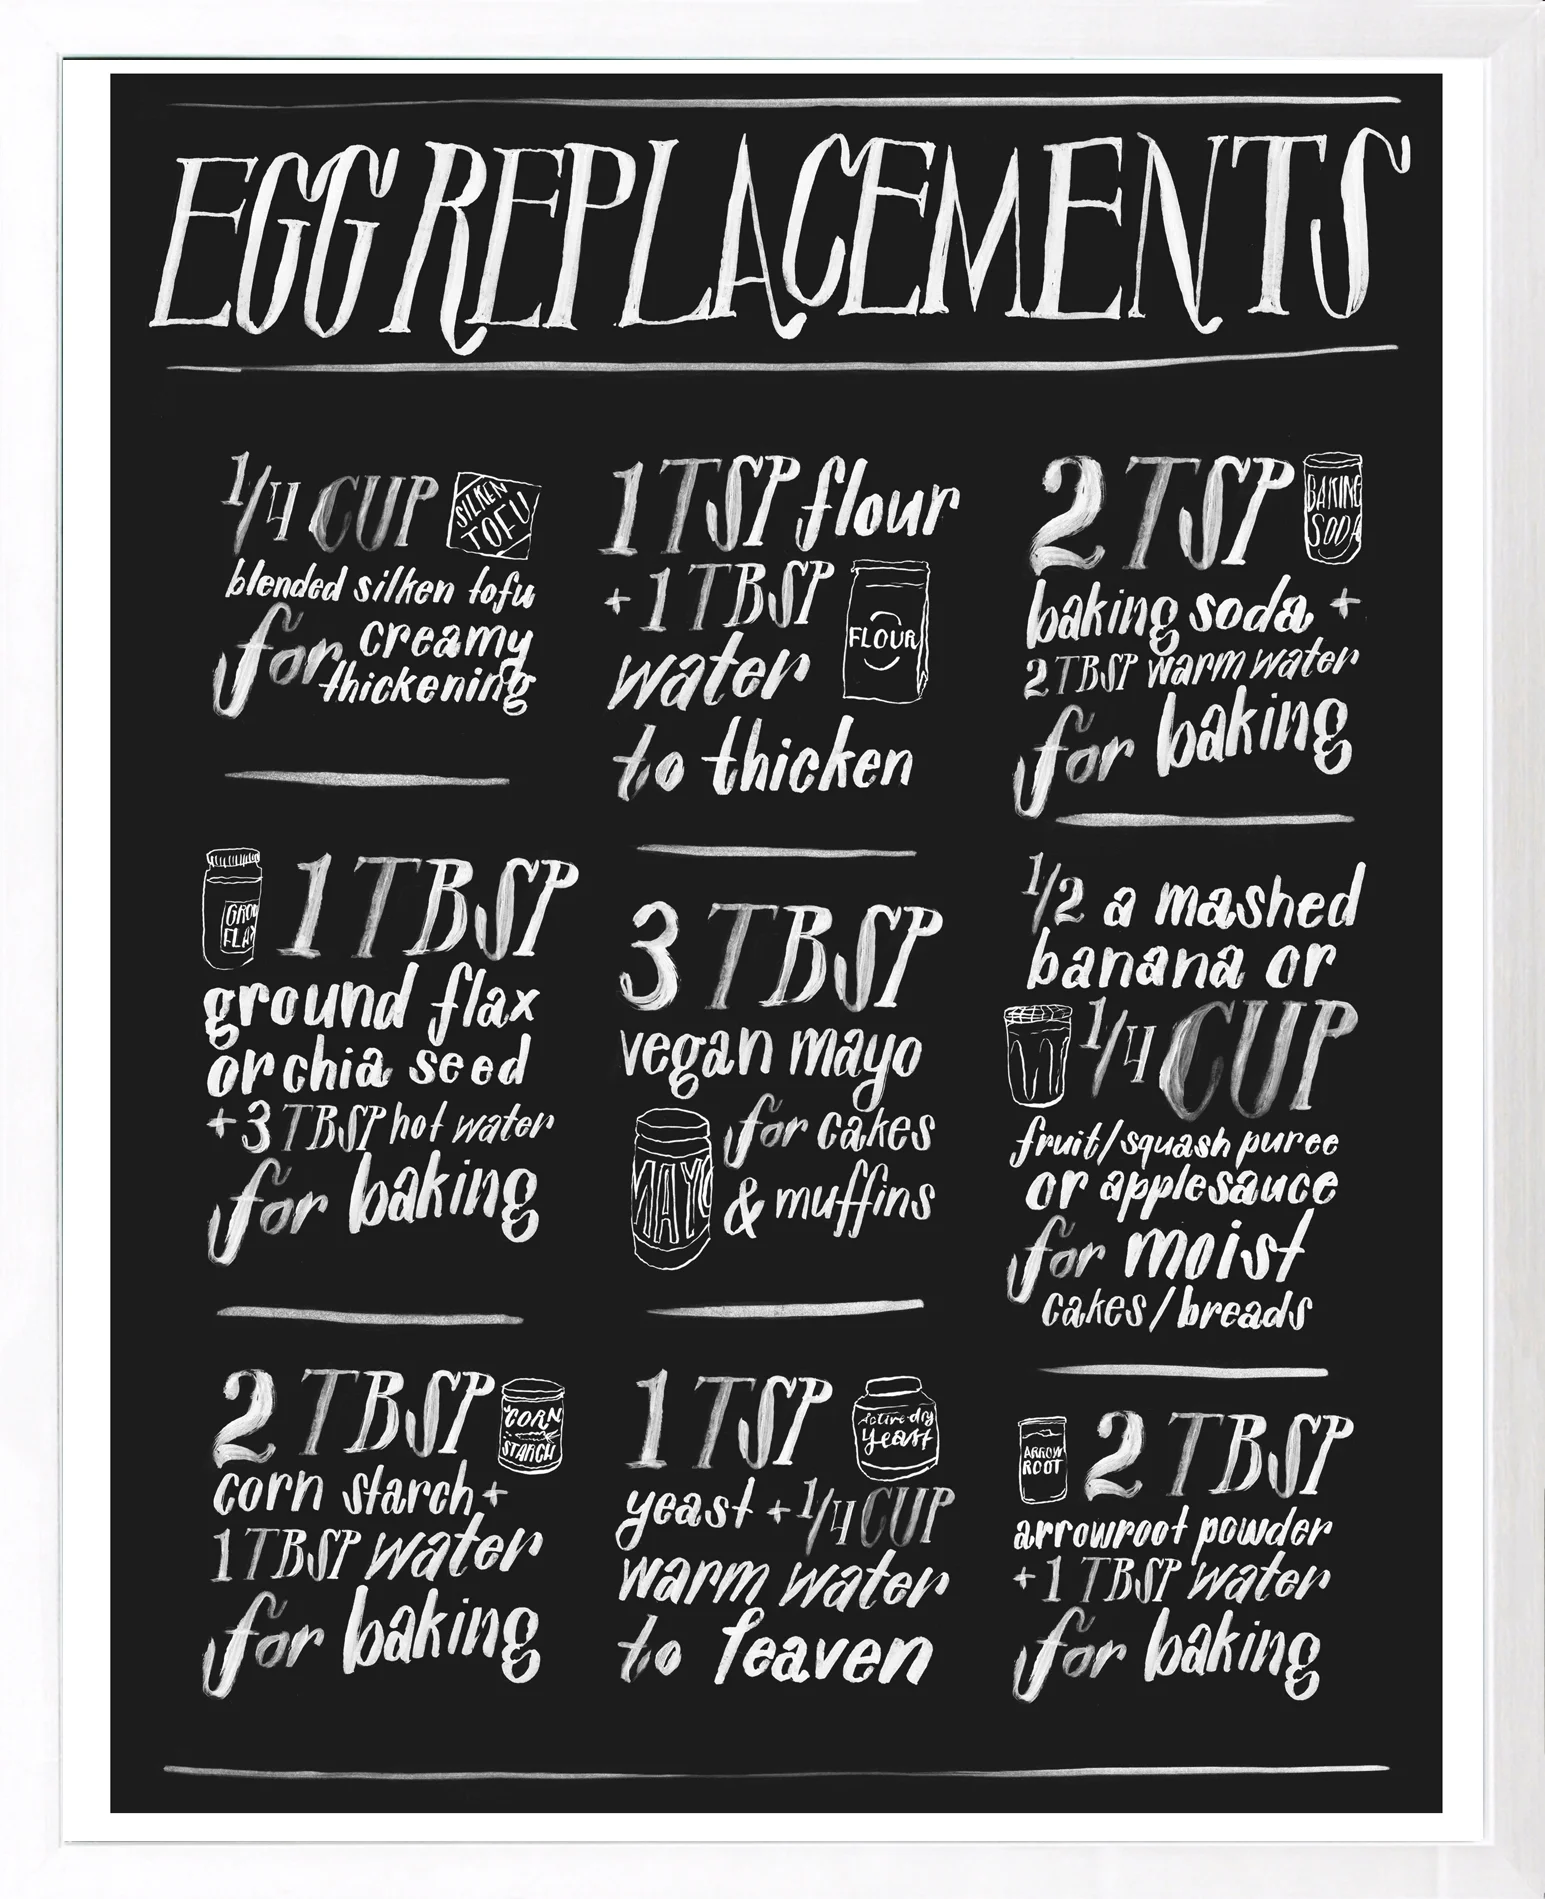 EGG REPLACEMENTS
1/4 CUP
SILKEN
TOFU
blended silken tofu
for creamy
thickening
1 TSP flour
+ 1 TBSP
water
FLOUR
to thicken
2 TSP
BAKING
SODA
baking soda +
2 TBSP warm water
for baking
1 TBSP
GRO
FLA
ground flax
or chia seed
+ 3 TBSP hot water
for baking
3 TBSP
vegan mayo
for cakes
MAYO
& muffins
1/2 a mashed
banana or
1/4 CUP
fruit/squash puree
or applesauce
for moist
cakes/breads
2 TBSP
CORN
STARCH
corn starch +
1 TBSP water
for baking
1 TSP
Active dry
yeast
yeast + 1/4 CUP
warm water
to leaven
ARROW
ROOT
2 TBSP
arrowroot powder
+ 1 TBSP water
for baking